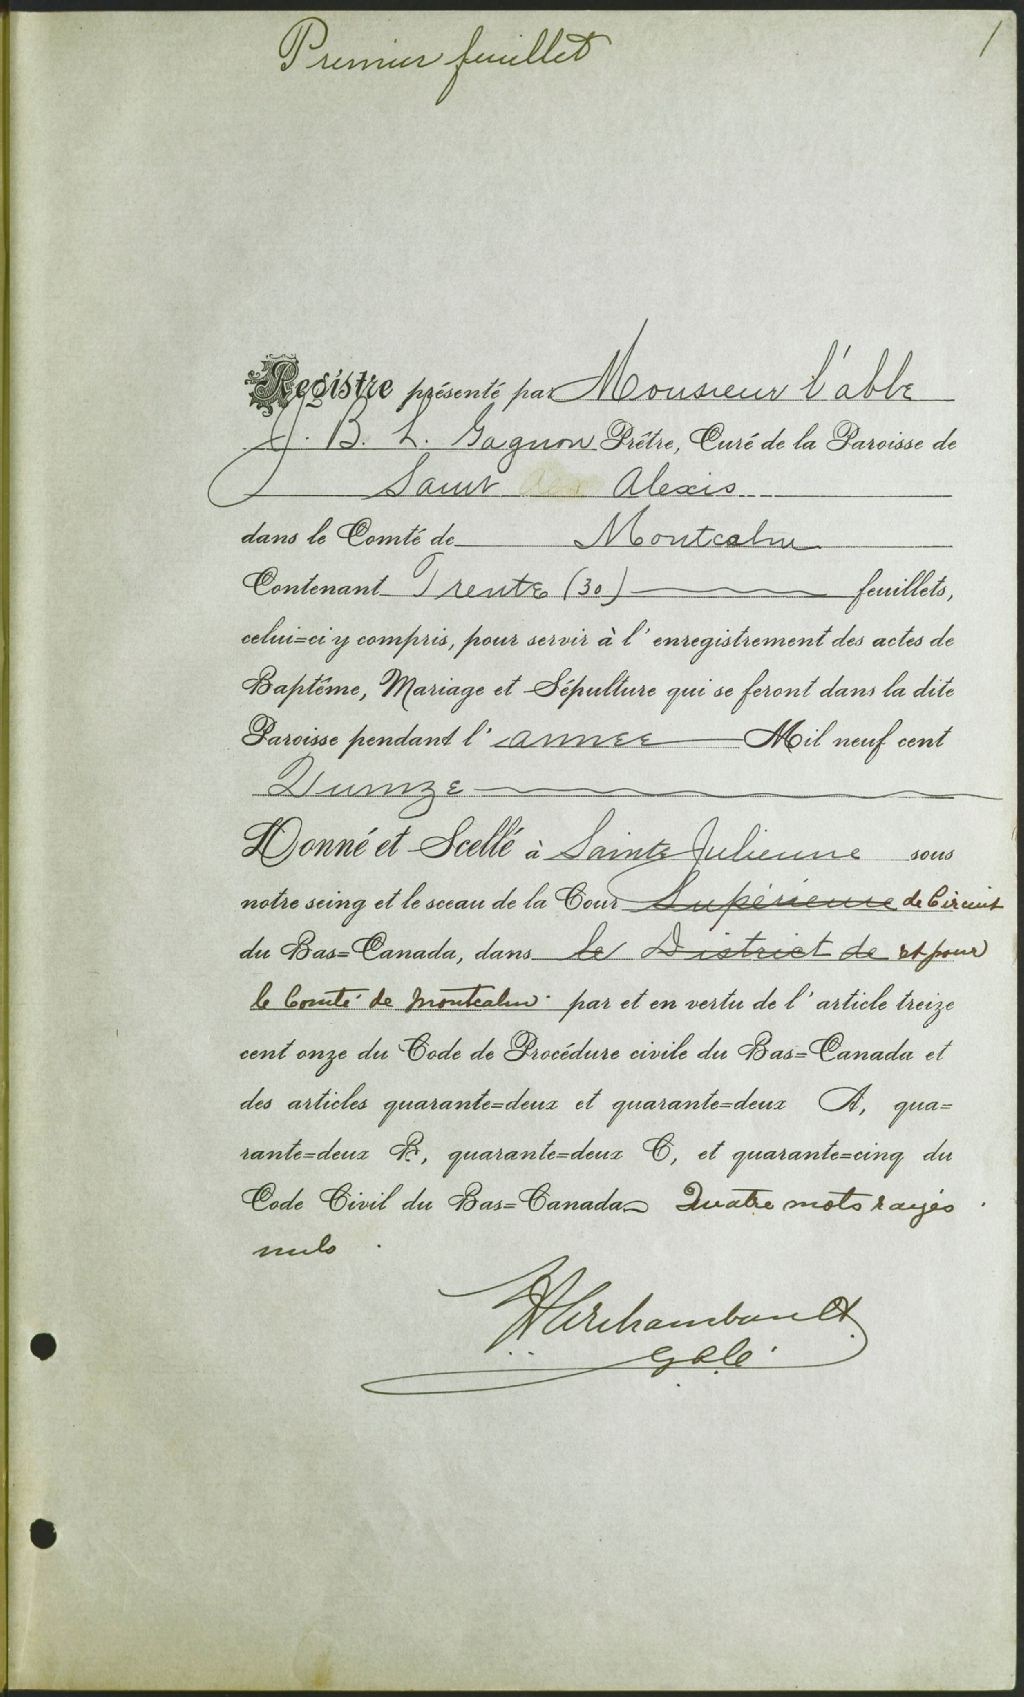 Premier feuillet
1
Registre présenté par Monsieur l'abbé
J. B. L. Gagnon Prêtre, Curé de la Paroisse de
Saint Alexis
dans le Comté de Montcalm
Contenant Trente (30) feuillets,
celui=ci y compris, pour servir à l'enregistrement des actes de
Baptême, Mariage et Sépulture qui se feront dans la dite
Paroisse pendant l'année Mil neuf cent
Quinze
Donné et Scellé à Sainte Julienne sous
notre seing et le sceau de la Cour Supérieure de Circuit
du Bas=Canada, dans le District de et pour
le Comté de Montcalm par et en vertu de l'article treize
cent onze du Code de Procédure civile du Bas=Canada et
des articles quarante=deux et quarante=deux A, qua=
rante=deux B, quarante=deux C, et quarante=cinq du
Code Civil du Bas=Canada Quatre mots rayés
nuls
Archambault